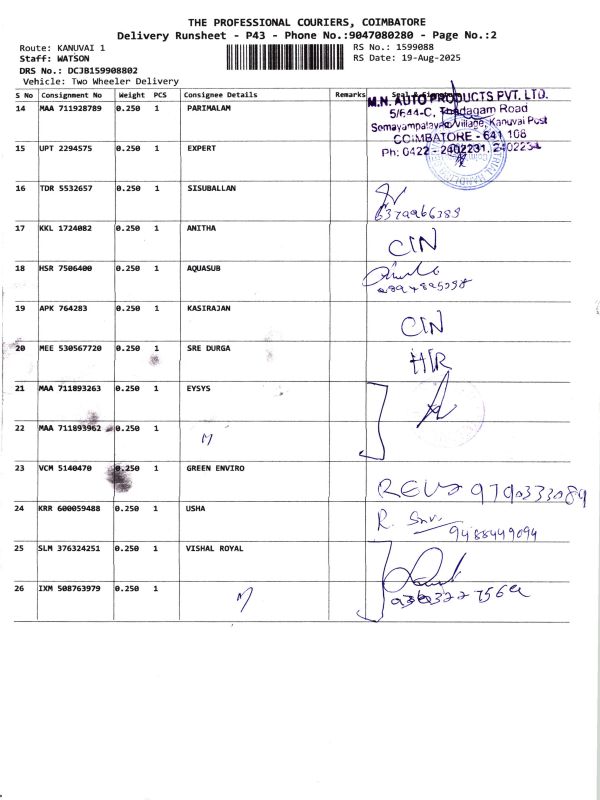 THE PROFESSIONAL COURIERS, COIMBATORE
Delivery Runsheet - P43 - Phone No.:9047080280 - Page No.:2
Route: KANUVAI 1
Staff: WATSON
DRS No.: DCJB159908802
Vehicle: Two Wheeler Delivery
RS No.: 1599088
RS Date: 19-Aug-2025
S No Consignment No Weight PCS Consignee Details Remarks
14 MAA 711928789 0.250 1 PARIMALAM
M.N. AUTO PRODUCTS PVT. LTD.
5/644-C, Thadagam Road
Somayampalayam Village, Kanuvai Post
COIMBATORE - 641 108
Ph: 0422 - 2402231, 2402234
15 UPT 2294575 0.250 1 EXPERT
16 TDR 5532657 0.250 1 SISUBALLAN
6379966388
17 KKL 1724082 0.250 1 ANITHA
CIN
18 HSR 7506400 0.250 1 AQUASUB
19 APK 764283 0.250 1 KASIRAJAN
CIN
20 MEE 530567720 0.250 1 SRE DURGA
HTR
21 MAA 711893263 0.250 1 EYSYS
22 MAA 711893962 0.250 1
23 VCM 5140470 0.250 1 GREEN ENVIRO
9790333089
24 KRR 600059488 0.250 1 USHA
9488449094
25 SLM 376324251 0.250 1 VISHAL ROYAL
26 IXM 508763979 0.250 1